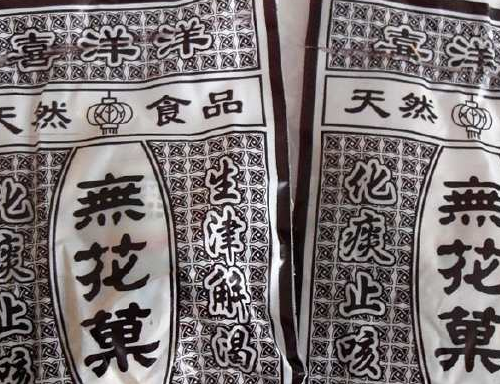 喜洋洋
天然 食品
化痰止咳
無花菓
生津解渴
喜洋
天然
化痰止咳
無花菓